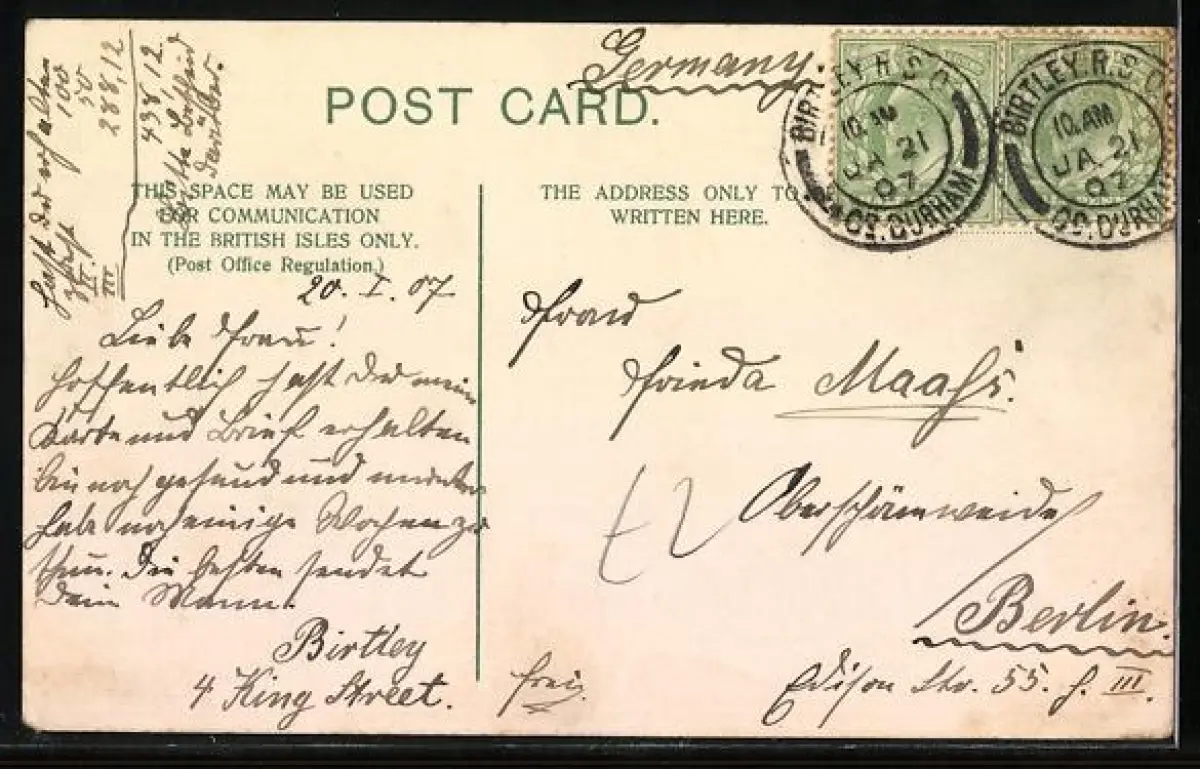 Germany.
POST CARD.
THIS SPACE MAY BE USED
FOR COMMUNICATION
IN THE BRITISH ISLES ONLY.
(Post Office Regulation.)
THE ADDRESS ONLY TO
WRITTEN HERE.
BIRTLEY R.S.O.
10. AM
JA 21
07
CO. DURHAM
BIRTLEY R.S.O.
10. AM
JA 21
07
CO. DURHAM
hast du erhalten
100
50
288,12
438,12
bitte
darüber.
III
20. I. 07
Liebe Frau!
Hoffentlich hast du meine
Karte und Brief erhalten
bin noch gesund und munter
habe noch einige Wochen zu
thun. Die besten sendet
Dein Mann.
Birtley
4 King Street.
Frau
Frieda Maahs.
Oberschöneweide
Berlin.
Edison Str. 55. III.
frei